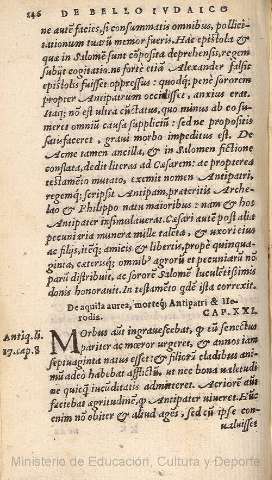 246 DE BELLO IVDAICO
ne aut facies, si consummatis omnibus, pollici-
tationum tuarū memor fueris. Hac epistola &
qua in Salomen sunt cōposita deprehensis, regem
subijt cogitatio, ne forte etiā Alexander falsis
epistolis fuisset oppressus: quodq́; penè sororem
propter Antipatrum occidisset, anxius erat.
Itaq; nō est ultra cūctatus, quo minus ab eo su-
meret omniū causa suppliciū: sed ne propositis
satisfaceret, graui morbo impeditus est. De
Acme tamen ancilla, & in Salomen fictione
conflata, dedit literas ad Cæsarem: ac propterea
testamēto mutato, exemit nomen Antipatri,
regemq́; scripsit Antipam, præteritis Arche-
lao & Philippo natu maioribus: nam & hos
Antipater insimulauerat. Cæsari autē post alia
pecuniaria munera mille talēta, & uxori eius
ac filijs, itēq́; amicis & libertis, prope quinqua-
ginta, ceterisq́; omnib' agrorū et pecuniarū nō
parū distribuit, ac sororē Salomē luculētissimis
donis honorauit. In testamēto qdē ista correxit.
De aquila aurea, morteq́; Antipatri & He-
rodis. CAP. XXI.
Antiq. li.
17. cap. 8
MOrbus aūt ingrauescebat, q̀ cū senectus
pariter ac mœror urgeret, & annos iam
septuaginta natus esset: & filiorū cladibus ani-
mū adeo habebat afflictū, ut nec bona ualetudi-
ne quicq̄ incūditatis admitteret. Acriorē aūt
faciebat agritudinē, q̀ Antipater uiueret. Hūc
enim nō obiter & aliud agēs, sed cū ipse con-
ualuisset
Ministerio de Educación, Cultura y Deporte